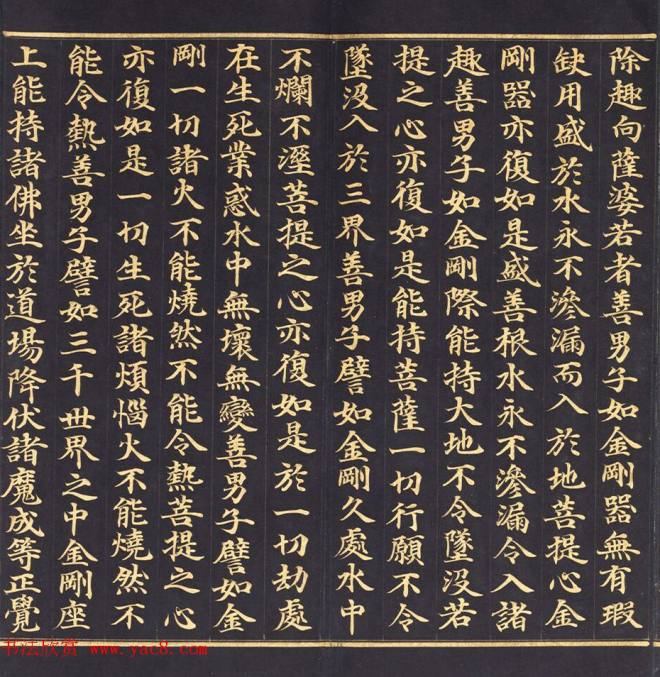 除趣向薩婆若者善男子如金剛器無有瑕
缺用盛於水永不滲漏而入於地菩提心金
剛器亦復如是盛善根水永不滲漏令入諸
趣善男子如金剛際能持大地不令墜沒若
提之心亦復如是能持菩薩一切行願不令
墜沒入於三界善男子譬如金剛久處水中
不爛不溼菩提之心亦復如是於一切劫處
在生死業惑水中無壞無變善男子譬如金
剛一切諸火不能燒然不能令熱菩提之心
亦復如是一切生死諸煩惱火不能燒然不
能令熱善男子譬如三千世界之中金剛座
上能持諸佛坐於道場降伏諸魔成等正覺
书法欣赏 www.yac8.com